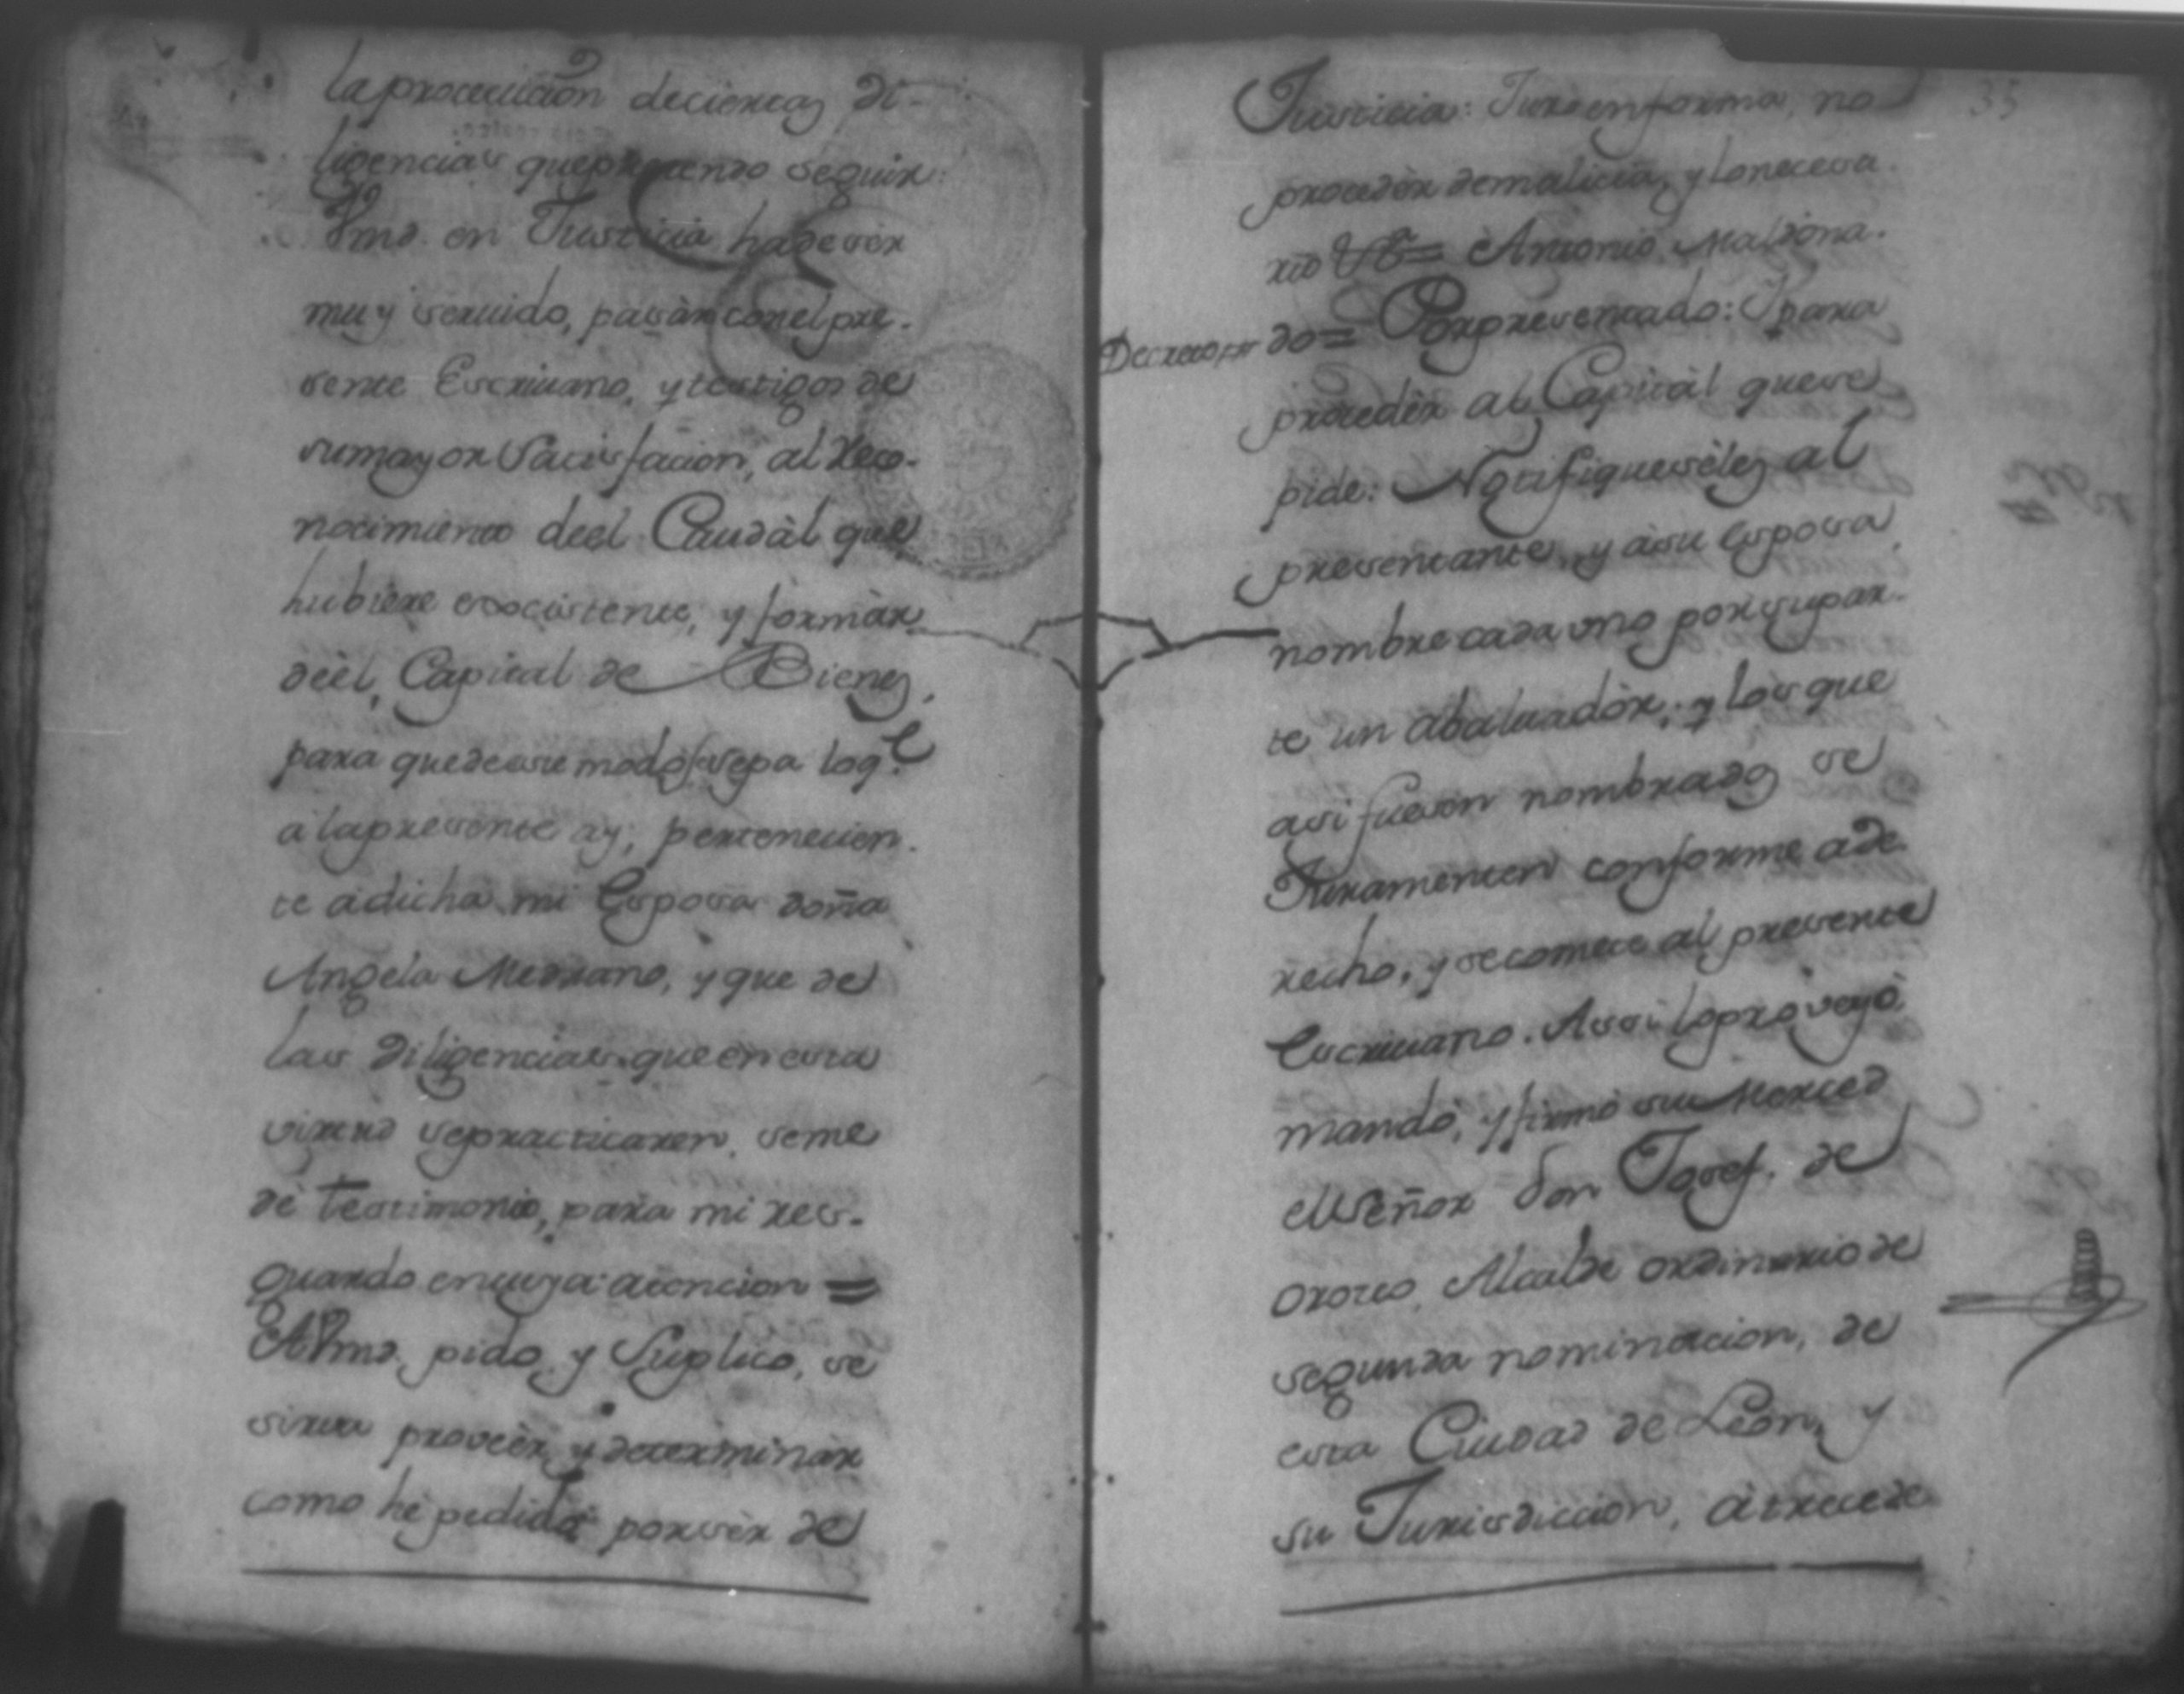 la prosecucion de ciertas di-
ligencias que pretendo seguir:
Vmd. en Justicia ha de ser
muy servido, pasàr con el pre-
sente Escrivano, y testigos de
su mayor Satisfacion, al Reco-
nocimiento de el Caudàl que
hubiere exsistente, y formàr
de èl, Capital de Bienes,
para que de este modo se sepa lo q.e
a la presente ay, pertenecien-
te a dicha mi Esposa doña
Angela Medrano, y que de
las Diligencias que en esta
virtud se practicaren, se me
dè Testimonio, para mi res-
guardo en cuya atencion =
A Vmd. pido, y Suplico, se
sirva proveèr, y determinàr
como hè pedido por sèr de
35
Justicia: Juro en forma, no
procedèr de malicia, y lo necesa-
rio Vt= Antonio Maldona-
Decreto do= Por presentado: Y para
procedèr al Capitàl que se
pide: Notifiquesèles al
presentante, y à su Esposa,
nombre cada uno por su par-
te un abaluadòr, y los que
asi fueren nombrados se
Juramenten conforme a de-
recho, y se comete al presente
Escrivano. Assi lo proveyò,
mandò, y firmò su Merced
el Señor Don Josef. de
Orozco Alcalde ordinario de
segunda nominacion, de
esta Ciudad de Leon, y
su Jurisdiccion, à trece de